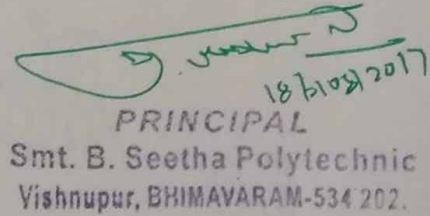 18/08/2017
PRINCIPAL
Smt. B. Seetha Polytechnic
Vishnupur, BHIMAVARAM-534 202.